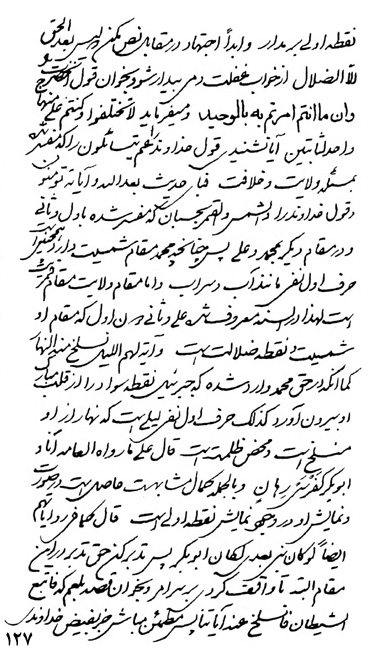 نقطه اولی بر مدار و ابداً اجتهاد در مقابل نص مکن لیس بعد الحق
الا الضلال از خواب غفلت دمی بیدار شو و بخوان قول
وان ما انتم امرتم به بالوحید و مسفر باید لا تختلفوا وکنتم علی
واحد ثابتین آیا نشنیدی قول خداوند را عم یتسائلون را که مفسر
بمسئله ولایت و خلافت فبای حدیث بعد الله و آیاته تؤمنون
و قول خداوند را و الشمس و القمر بحسبان که مفسر شده باول و ثانی
و در مقام دیگر بمحمد و علی پس چنانچه محمد مقام شمسیت دارد
حرف اول نفی مانند آب و سراب و اما مقام ولایت مقام
است لهذا در السنه معروف علی و ثانی چون اول که مقام او
شمسیت نقطه ضلالت است و آیة لهم اللیل نسلخ منه النهار
کما انکه در حق محمد وارد شده که جبرئیل نقطه سواد را از قلب مبارک
او بیرون آورد کذلک حرف اول نفی لیلی است که نهار از او
منسلخ است و محض ظلمت است قال علی ما رواه العامه انا و
ابوبکر کفرسی رهان و بالجمله کمال مشابهت حاصل است در صورت
و نمایش او در وجهی نمایش نقطه اولی است قال
ایضاً لو کان نبی بعدی لکان ابوبکر پس تدبر کن حق تدبر در این
مقام البته تا واقف گردی بر سر امر و بخوان قصه بلعم که فاتبعه
الشیطان فانسلخ عند آیاتنا پس مطمئن مباش جز بفیض خداوندی
۱۲۷